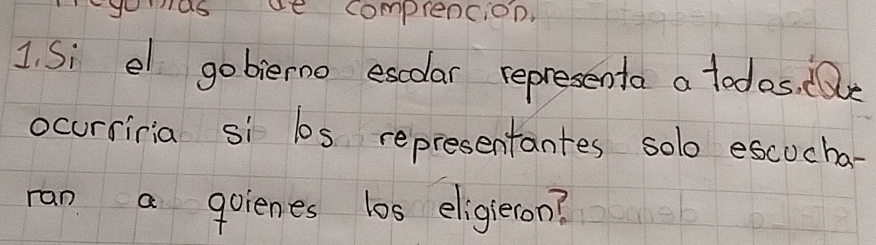 Preguntas de comprencion.
1. Si el gobierno escolar representa a todos. ¿Que
ocurriria si los representantes solo escucha-
ran a quienes los eligieron?